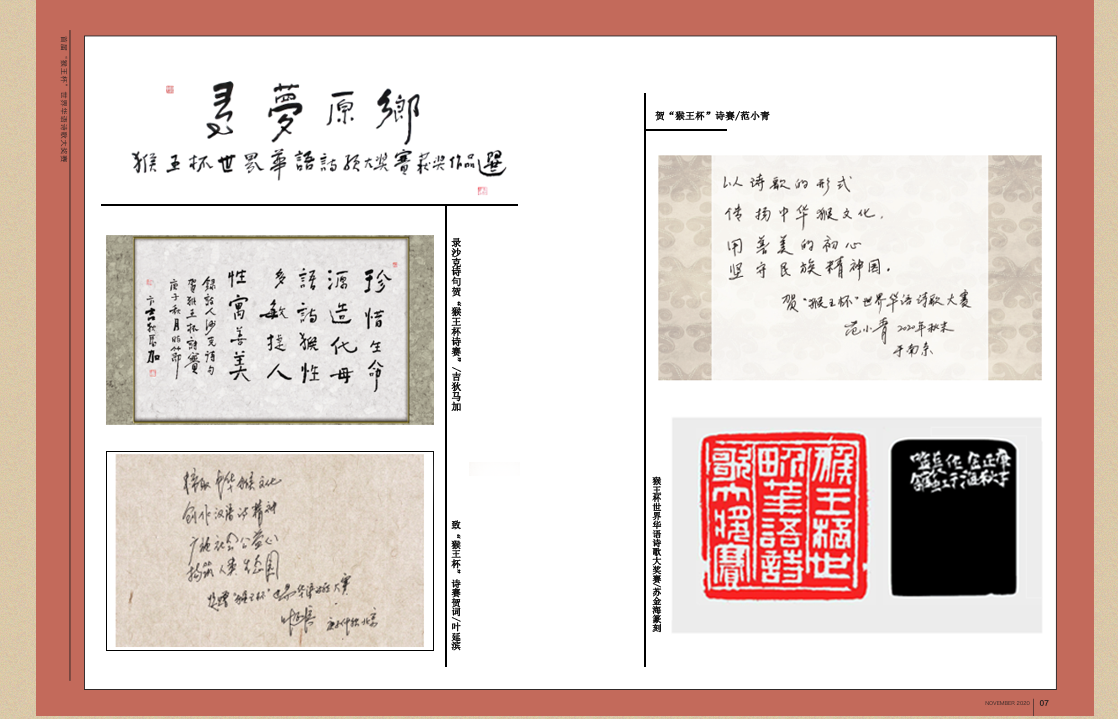 首届“猴王杯”世界华语诗歌大奖赛
寻夢原鄉
猴王杯世界華語詩歌大奖賽获奖作品選
珍惜生命
源造化母
語詩猴性
多敏捷人
性寓善美
錄詩人沙克詩句
賀猴王杯詩賽
庚子秋月
吉狄馬加
录沙克诗句贺“猴王杯诗赛”/吉狄马加
中华猴文化
创作汉语诗精神
广施社会公益心
构筑人类生态园
“猴王杯”世界华语诗歌大赛
叶延滨
致“猴王杯”诗赛贺词/叶延滨
贺“猴王杯”诗赛/范小青
以诗歌的形式
传扬中华猴文化，
用善美的初心
坚守民族精神园。
贺“猴王杯”世界华语诗歌大赛
范小青 2020年秋末
于南京
猴王杯世
界華語詩
歌大獎賽
猴王杯世界华语诗歌大奖赛/苏金海篆刻
NOVEMBER 2020 07